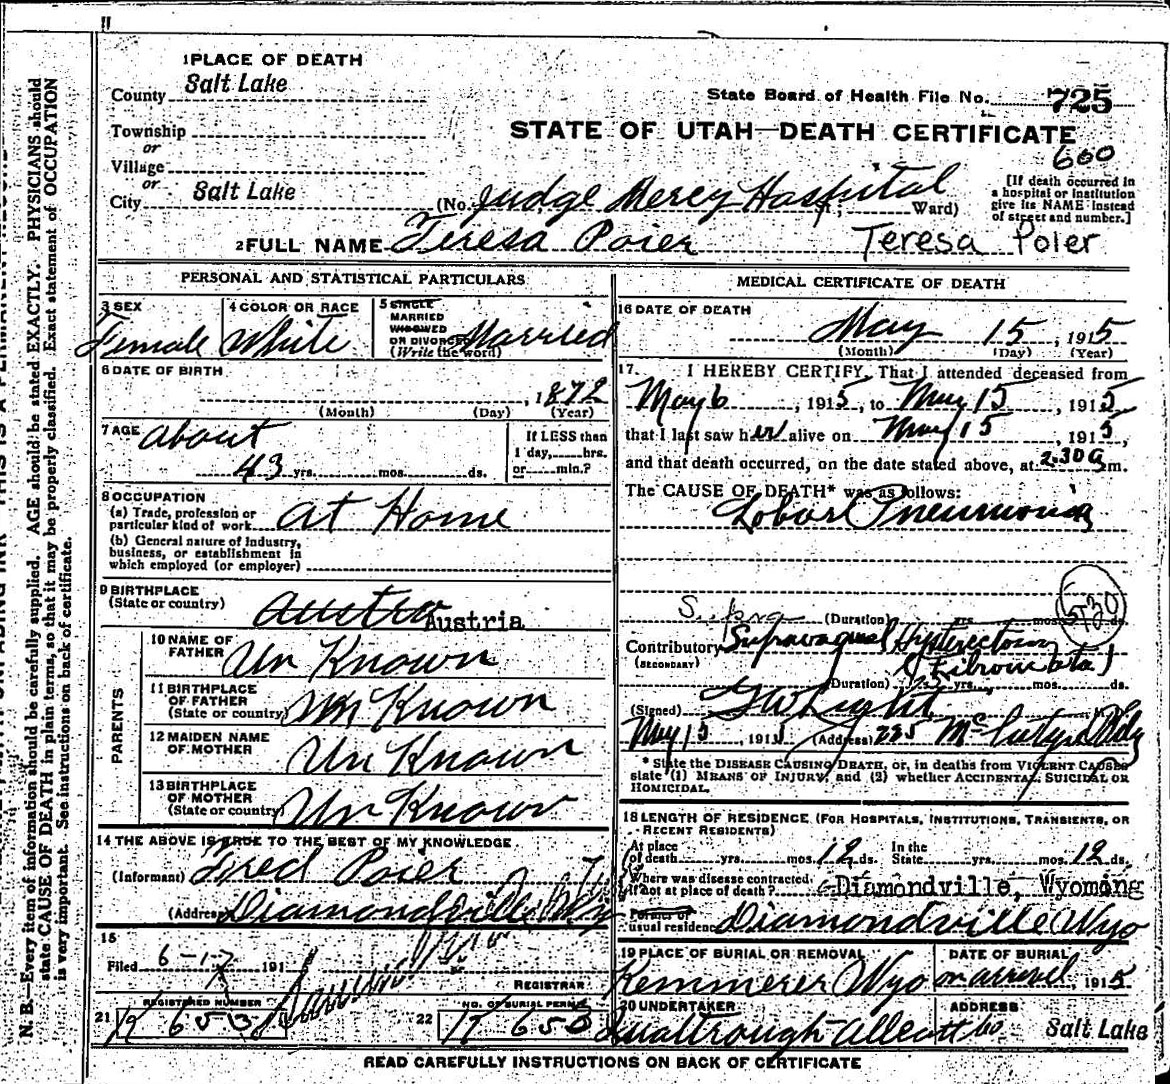 11
1 PLACE OF DEATH
County Salt Lake
Township
or
Village
or
City Salt Lake
State Board of Health File No. 725
STATE OF UTAH—DEATH CERTIFICATE
600
(No. Judge Mercy Hospital Ward)
[If death occurred in
a hospital or institution
give its NAME instead
of street and number.]
2 FULL NAME Teresa Poier Teresa Poier
PERSONAL AND STATISTICAL PARTICULARS
3 SEX Female
4 COLOR OR RACE White
5 SINGLE
MARRIED
WIDOWED
OR DIVORCED
(Write the word) Married
6 DATE OF BIRTH
, 1872
(Month) (Day) (Year)
7 AGE about
43 yrs. mos. ds.
If LESS than
1 day, hrs.
or min.?
8 OCCUPATION
(a) Trade, profession or
particular kind of work at Home
(b) General nature of industry,
business, or establishment in
which employed (or employer)
9 BIRTHPLACE
(State or country) Austria Austria
PARENTS
10 NAME OF
FATHER Un Known
11 BIRTHPLACE
OF FATHER
(State or country) Un Known
12 MAIDEN NAME
OF MOTHER Un Known
13 BIRTHPLACE
OF MOTHER
(State or country) Un Known
14 THE ABOVE IS TRUE TO THE BEST OF MY KNOWLEDGE
(Informant) Fred Poier
(Address) Diamondville Wy
15
Filed 6-1- 191
REGISTRAR
REGISTERED NUMBER
21 K 653
NO. OF BURIAL PERMIT
22 K 653
MEDICAL CERTIFICATE OF DEATH
16 DATE OF DEATH
May 15, 1915
(Month) (Day) (Year)
17. I HEREBY CERTIFY, That I attended deceased from
May 6, 1915, to May 15, 1915
that I last saw her alive on May 15, 1915,
and that death occurred, on the date stated above, at 2.30 m.
The CAUSE OF DEATH* was as follows:
Lobar Pneumonia
(Duration) yrs. mos. ds.
Contributory Supravaginal Hysterectomy
(SECONDARY) (Fibromata)
(Duration) yrs. mos. ds.
(Signed) GW Light
May 15, 191 (Address) 225 McIntyre Bldg
* State the DISEASE CAUSING DEATH, or, in deaths from VIOLENT CAUSES
state (1) MEANS OF INJURY, and (2) whether ACCIDENTAL, SUICIDAL OR
HOMICIDAL.
18 LENGTH OF RESIDENCE (FOR HOSPITALS, INSTITUTIONS, TRANSIENTS, OR
RECENT RESIDENTS)
At place
of death yrs. mos. 12 ds. In the
State yrs. mos. 12 ds.
Where was disease contracted,
if not at place of death? Diamondville, Wyoming
Former or
usual residence Diamondville Wyo
19 PLACE OF BURIAL OR REMOVAL
Kemmerer Wyo
DATE OF BURIAL
on arrival, 1915
20 UNDERTAKER
Qualtrough-Allcott Co
ADDRESS
Salt Lake
READ CAREFULLY INSTRUCTIONS ON BACK OF CERTIFICATE
N. B.—Every item of information should be carefully supplied. AGE should be stated EXACTLY. PHYSICIANS should
state CAUSE OF DEATH in plain terms, so that it may be properly classified. Exact statement of OCCUPATION
is very important. See instructions on back of certificate.